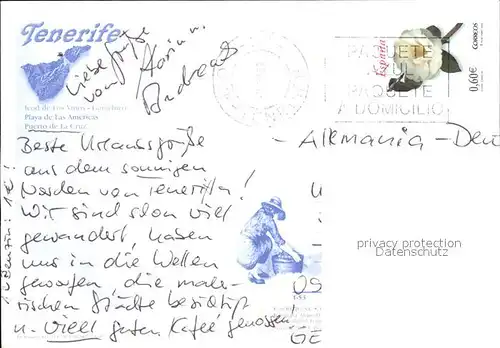 Tenerife
Icod de Los Vinos - Garachico
Playa de Las Americas
Puerto de La Cruz
Liebe Grüße
von Karin u.
Andreas
España
CORREOS
0,60€
PAQUETE
PAQUETE
A DOMICILIO
- Alemania - Deu
Beste Urlaubsgrüße
aus dem sonnigen
Norden von Teneriffa!
Wir sind schon viel
gewandert, haben
uns in die Wellen
geworfen, die male-
rischen Städte besichtigt
u. viel guten Kaffee genossen!
privacy protection
Datenschutz